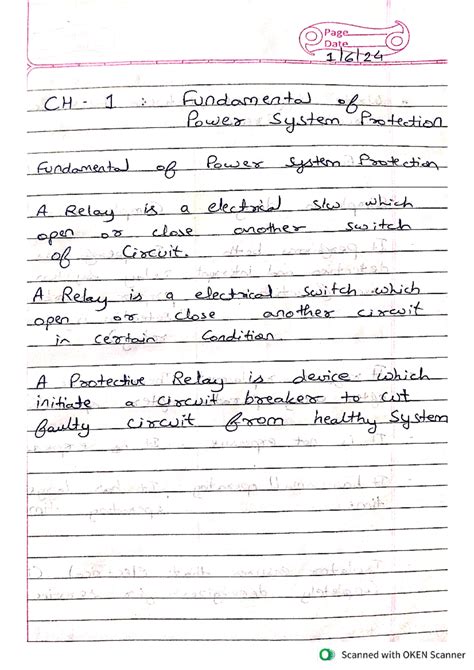 Page
Date
1/6/24
CH - 1 : Fundamental of
Power System Protection
Fundamental of Power System Protection
A Relay is a electrical s/w which
open or close another switch
of Circuit.
A Relay is a electrical switch which
open or close another circuit
in certain Condition.
A Protective Relay is device which
initiate a circuit breaker to cut
faulty circuit from healthy System
Scanned with OKEN Scanner